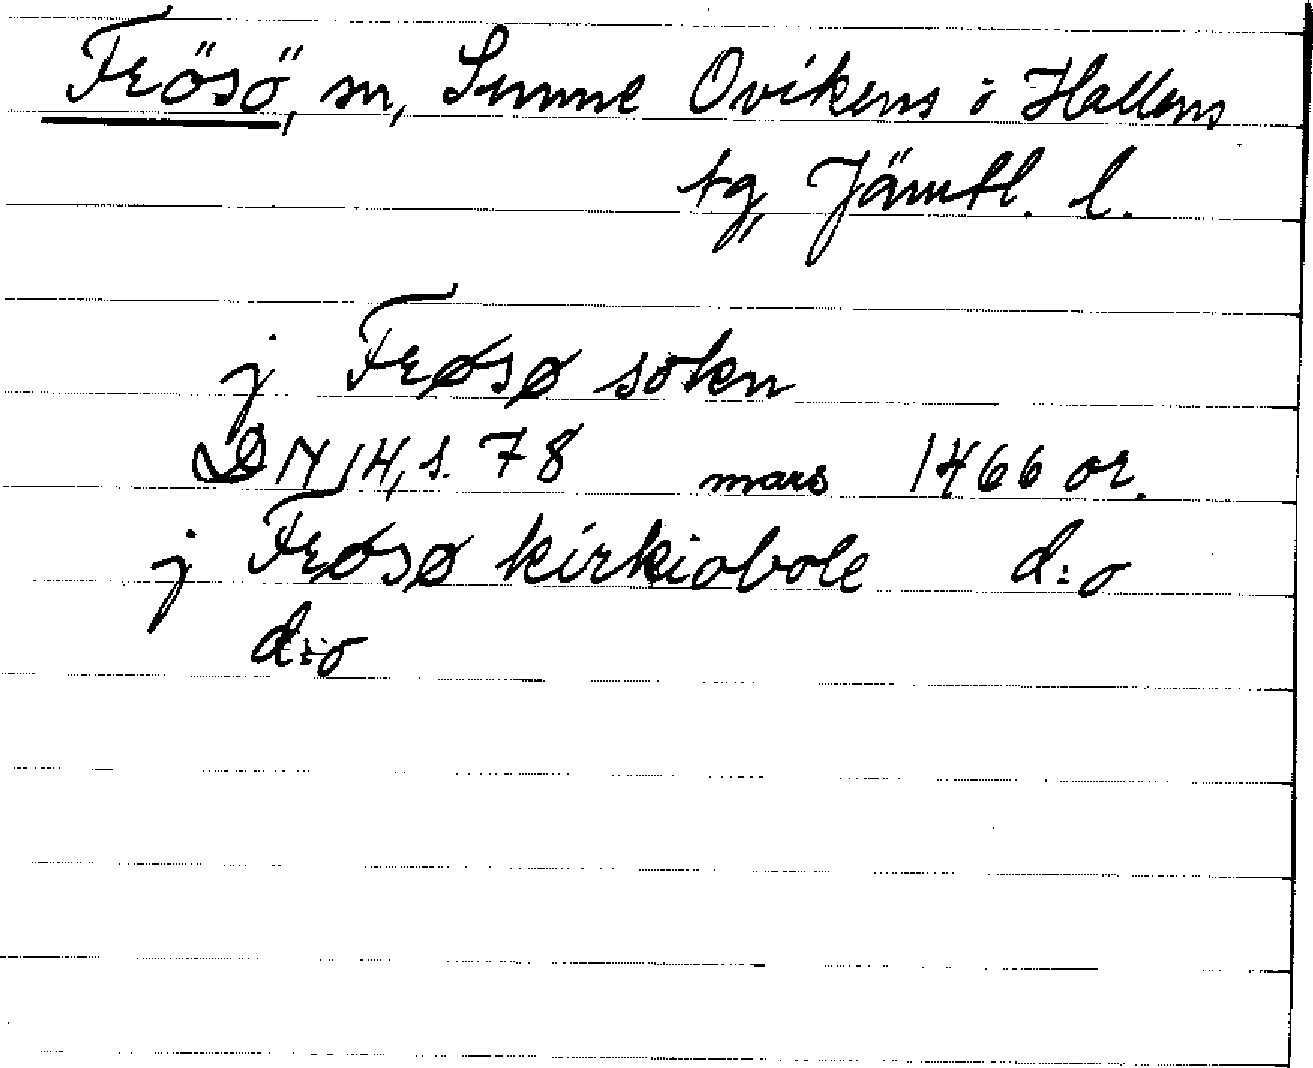 Frösö, sn, Sunne Ovikens o Hallens
tg, Jämtl. l.
j Frøsø sokn
DN 14, s. 78 mars 1466 or.
j Frøsø kirkiobole d:o
d:o